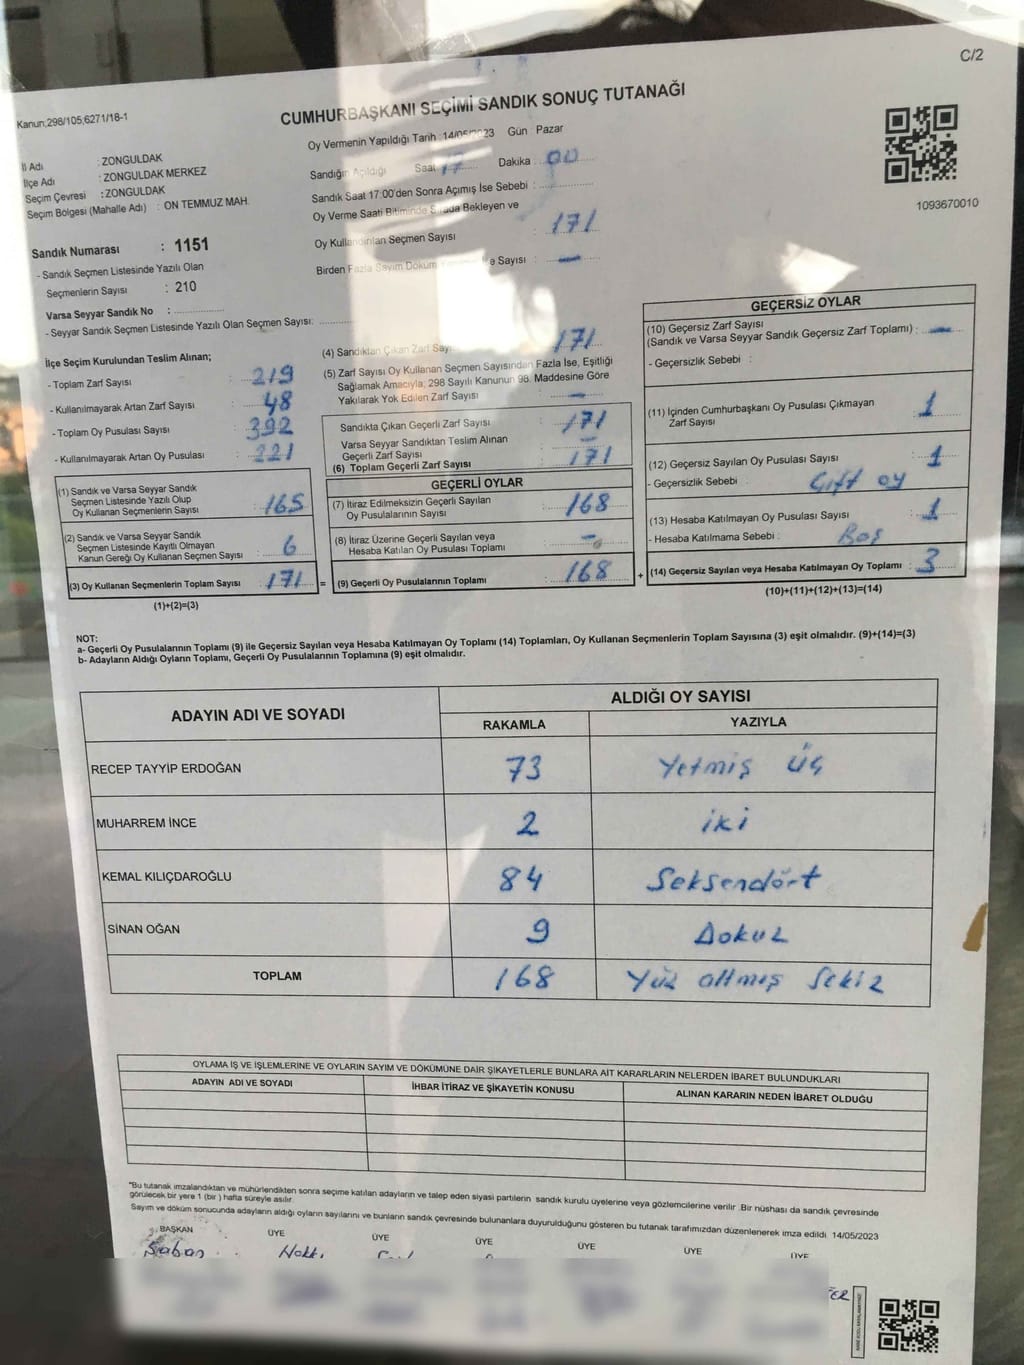 C/2
Kanun;298/105,6271/18-1
CUMHURBAŞKANI SEÇİMİ SANDIK SONUÇ TUTANAĞI
İl Adı : ZONGULDAK
İlçe Adı : ZONGULDAK MERKEZ
Seçim Çevresi : ZONGULDAK
Seçim Bölgesi (Mahalle Adı) : ON TEMMUZ MAH.
Oy Vermenin Yapıldığı Tarih : 14/05/2023 Gün : Pazar
Sandığın Açıldığı Saat 17 Dakika 00
Sandık Saat 17:00'den Sonra Açımış İse Sebebi :
Oy Verme Saati Bitiminde Sırada Bekleyen ve
Oy Kullandırılan Seçmen Sayısı : 171
Birden Fazla Sayım Döküm e Sayısı : —
1093670010
Sandık Numarası : 1151
- Sandık Seçmen Listesinde Yazılı Olan
Seçmenlerin Sayısı : 210
Varsa Seyyar Sandık No :
- Seyyar Sandık Seçmen Listesinde Yazılı Olan Seçmen Sayısı:
İlçe Seçim Kurulundan Teslim Alınan;
- Toplam Zarf Sayısı : 219
- Kullanılmayarak Artan Zarf Sayısı : 48
- Toplam Oy Pusulası Sayısı : 392
- Kullanılmayarak Artan Oy Pusulası : 221
(1) Sandık ve Varsa Seyyar Sandık
Seçmen Listesinde Yazılı Olup
Oy Kullanan Seçmenlerin Sayısı : 165
(2) Sandık ve Varsa Seyyar Sandık
Seçmen Listesinde Kayıtlı Olmayan
Kanun Gereği Oy Kullanan Seçmen Sayısı : 6
(3) Oy Kullanan Seçmenlerin Toplam Sayısı : 171 =
(1)+(2)=(3)
(4) Sandıktan Çıkan Zarf Sayı 171
(5) Zarf Sayısı Oy Kullanan Seçmen Sayısından Fazla İse, Eşitliği
Sağlamak Amacıyla; 298 Sayılı Kanunun 98. Maddesine Göre
Yakılarak Yok Edilen Zarf Sayısı : —
Sandıkta Çıkan Geçerli Zarf Sayısı : 171
Varsa Seyyar Sandıktan Teslim Alınan
Geçerli Zarf Sayısı : —
(6) Toplam Geçerli Zarf Sayısı : 171
GEÇERLİ OYLAR
(7) İtiraz Edilmeksizin Geçerli Sayılan
Oy Pusulalarının Sayısı : 168
(8) İtiraz Üzerine Geçerli Sayılan veya
Hesaba Katılan Oy Pusulası Toplamı : —
(9) Geçerli Oy Pusulalarının Toplamı : 168 +
GEÇERSİZ OYLAR
(10) Geçersiz Zarf Sayısı
(Sandık ve Varsa Seyyar Sandık Geçersiz Zarf Toplamı) : —
- Geçersizlik Sebebi :
(11) İçinden Cumhurbaşkanı Oy Pusulası Çıkmayan
Zarf Sayısı : 1
(12) Geçersiz Sayılan Oy Pusulası Sayısı : 1
- Geçersizlik Sebebi : Çift oy
(13) Hesaba Katılmayan Oy Pusulası Sayısı : 1
- Hesaba Katılmama Sebebi : Boş
(14) Geçersiz Sayılan veya Hesaba Katılmayan Oy Toplamı : 3
(10)+(11)+(12)+(13)=(14)
NOT:
a- Geçerli Oy Pusulalarının Toplamı (9) ile Geçersiz Sayılan veya Hesaba Katılmayan Oy Toplamı (14) Toplamları, Oy Kullanan Seçmenlerin Toplam Sayısına (3) eşit olmalıdır. (9)+(14)=(3)
b- Adayların Aldığı Oyların Toplamı, Geçerli Oy Pusulalarının Toplamına (9) eşit olmalıdır.
ADAYIN ADI VE SOYADI ALDIĞI OY SAYISI
RAKAMLA YAZIYLA
RECEP TAYYİP ERDOĞAN 73 Yetmiş üç
MUHARREM İNCE 2 iki
KEMAL KILIÇDAROĞLU 84 Seksendört
SİNAN OĞAN 9 Dokuz
TOPLAM 168 Yüz altmış sekiz
OYLAMA İŞ VE İŞLEMLERİNE VE OYLARIN SAYIM VE DÖKÜMÜNE DAİR ŞİKAYETLERLE BUNLARA AİT KARARLARIN NELERDEN İBARET BULUNDUKLARI
ADAYIN ADI VE SOYADI İHBAR İTİRAZ VE ŞİKAYETİN KONUSU ALINAN KARARIN NEDEN İBARET OLDUĞU
*Bu tutanak imzalandıktan ve mühürlendikten sonra seçime katılan adayların ve talep eden siyasi partilerin sandık kurulu üyelerine veya gözlemcilerine verilir. Bir nüshası da sandık çevresinde
görülecek bir yere 1 (bir ) hafta süreyle asılır.
Sayım ve döküm sonucunda adayların aldığı oyların sayılarını ve bunların sandık çevresinde bulunanlara duyurulduğunu gösteren bu tutanak tarafımızdan düzenlenerek imza edildi. 14/05/2023
BAŞKAN ÜYE ÜYE ÜYE ÜYE ÜYE ÜYE
Şaban Hakkı